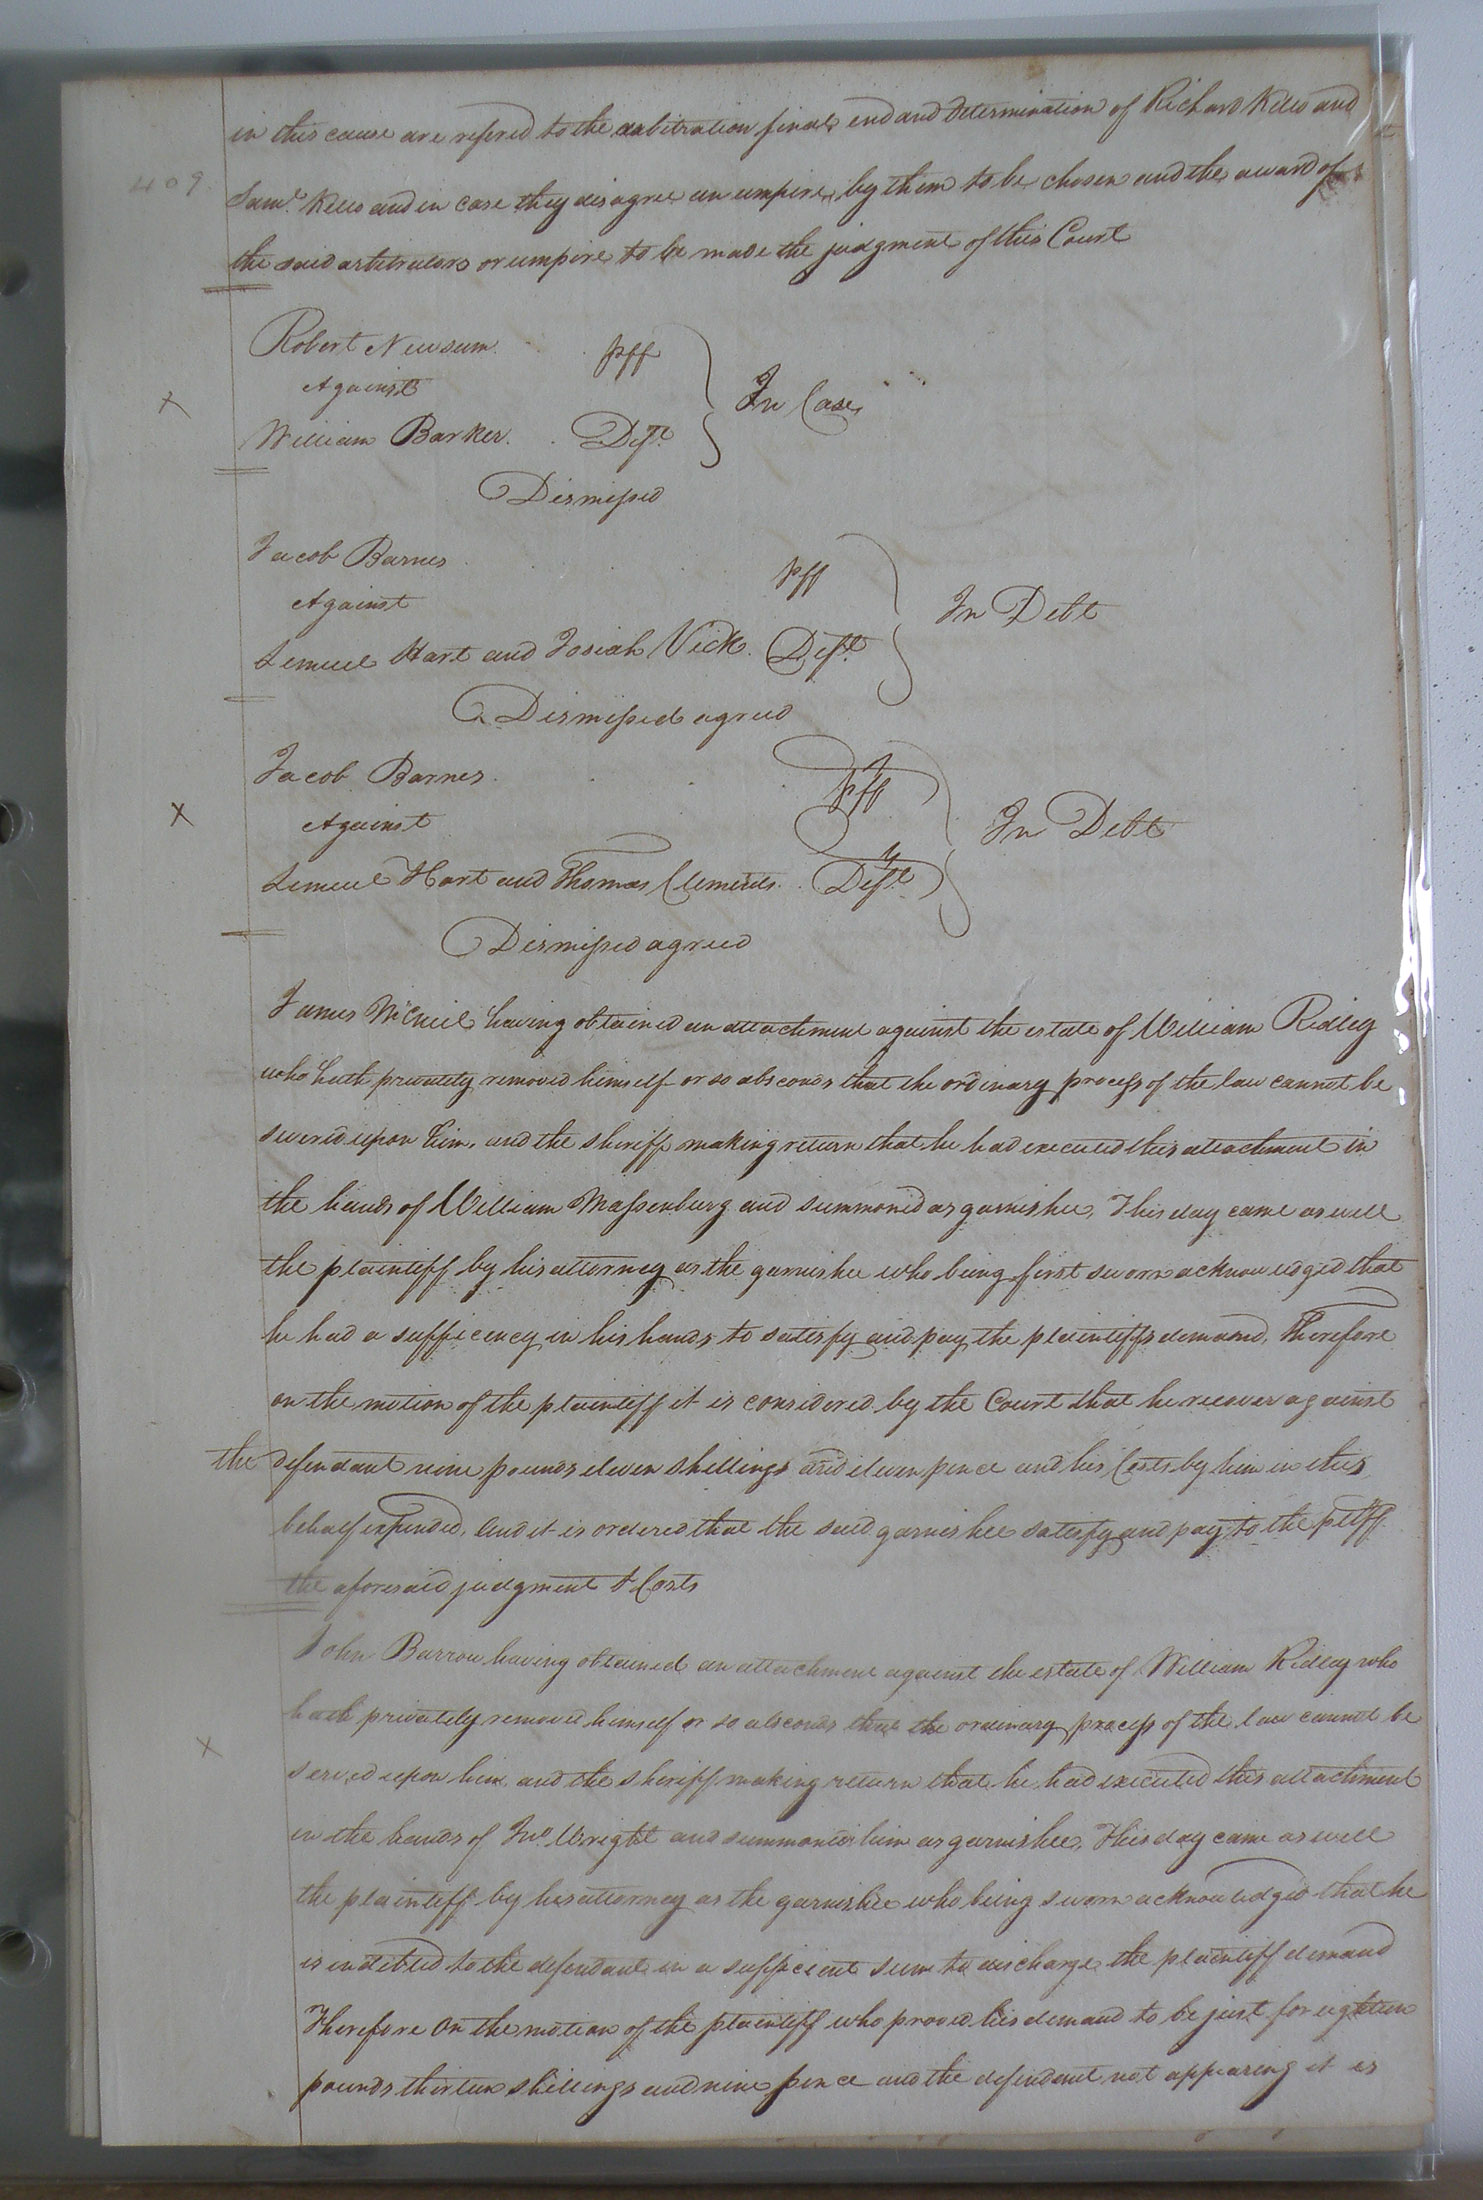 in this cause are refered to the arbitration final end and Determination of Richard Kello and
409
Saml. Kello and in case they disagree an umpire by them to be chosen and the award of
the said arbitrators or umpire to be made the judgment of this Court
Robert Newsum pff
Against
In Case
William Barker Deft.
Dismissed
Jacob Barnes pff
Against
In Debt
Lemuel Hart and Josiah Vick Deft.
Dismissed agreed
Jacob Barnes pff
Against
In Debt
Lemuel Hart and Thomas Clements Deft.
Dismissed agreed
James McNeil having obtained an attachment against the estate of William Ridley
who hath privately removed himself or so absconds that the ordinary process of the law cannot be
served upon him, and the sheriff making return that he had executed this attachment in
the hands of William Massenburg and summoned as garnishee, This day came as well
the plaintiff by his attorney as the garnishee who being first sworn acknowledged that
he had a sufficency in his hands to satisfy and pay the plaintiffs demand, Therefore
on the motion of the plaintiff it is considered by the Court that he recover against
the defendant nine pounds eleven shillings and eleven pence and his Costs by him in this
behalf expended, And it is ordered that the said garnishee satisfy and pay to the pltff
the aforesaid judgment & Costs
John Barrow having obtained an attachment against the estate of William Ridley who
hath privately removed himself or so absconds that the ordinary process of the law cannot be
served upon him and the sheriff making return that he had executed this attachment
in the hands of Jno. Wright and summoned him as garnishee, This day came as well
the plaintiff by his attorney as the garnishee who being sworn acknowledged that he
is indebted to the defendant in a sufficient sum to discharge the plaintiff demand
Therefore On the motion of the plaintiff who proved his demand to be just for eighteen
pounds thirteen shillings and nine pence and the defendant not appearing it is